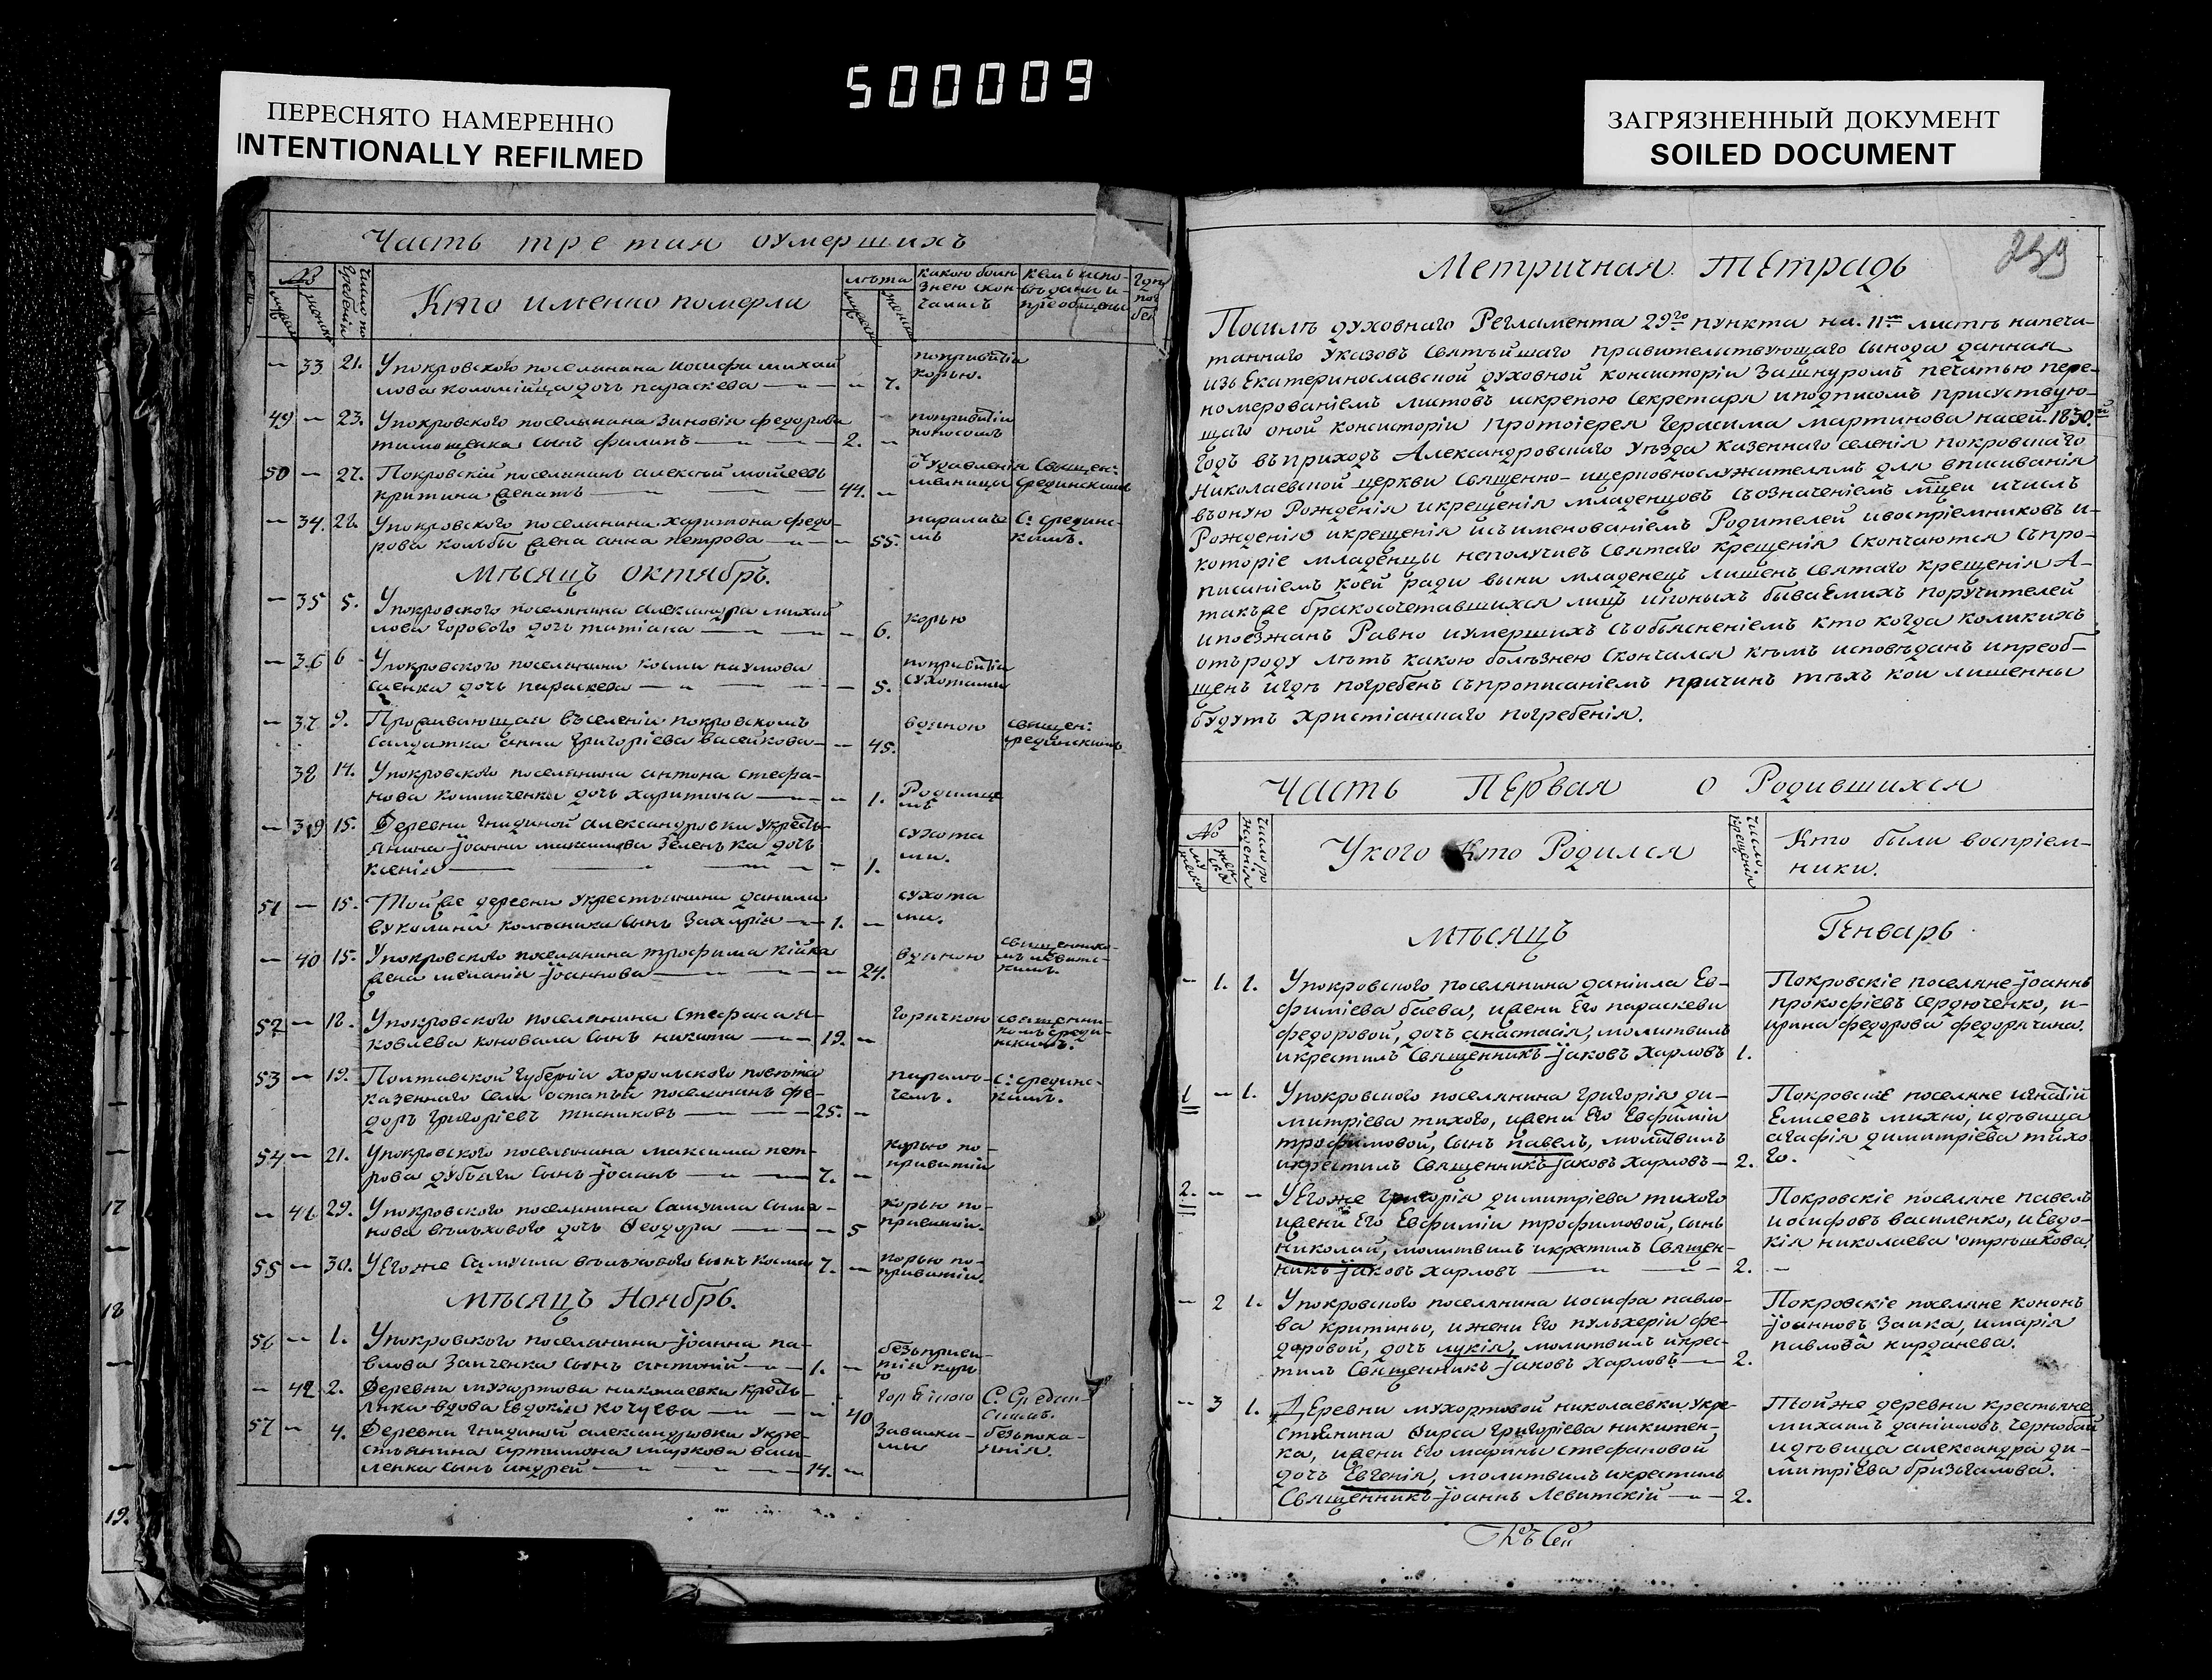 500009
ПЕРЕСНЯТО НАМЕРЕННО
INTENTIONALLY REFILMED
ЗАГРЯЗНЕННЫЙ ДОКУМЕНТ
SOILED DOCUMENT
Часть третия оумершихъ
№
Число по
гребенія
Кто именно померли
лѣта
какою болѣ
знею скон
чались
кемъ испо-
вѣданы и
преобщены
33. 21. Упокровского поселянина иосифа михай
лова коломійца дочь параскева 7.
попривитіи
корью.
49 23. Упокровского поселянина Зиновія федорова
тимощенка сынъ филипъ 2.
попривитіи
поносомъ
50 27. Покровскій поселянинъ алексѣй мойсеевъ
критина женатъ 44.
удавленія
мелницы
Священ:
срединскимъ
34. 28. Упокровского поселянина харитона федо-
рова кользы жена анна петрова 55.
параличе
мъ
С: срединс-
кимъ.
Мѣсяцъ октябрь.
35 5. Упокровского поселянина александра михай
лова горового дочь татіана 6.
корью
36 6 Упокровского поселянина космы наумова
саенка дочь параскева 5.
попривитіи
сухотами
37 9. Проживающая въселеніи покровскомъ
салдатка анна григоріева васейкова 45.
водяною
священ:
срединскимъ
38 14. Упокровского поселянина антона стефа-
нова дочь харитина 1.
Родимце
мъ
39 15. Деревни гнидиной александровки укресть-
янина іоанна максимова Зеленька дочь
ксенія 1.
сухота
ми.
51 15. Той же деревни укрестьянина данила
вуколина колѣсника сынъ Захарія 1.
сухота
ми.
40 15. Упокровского поселянина трофима кійка
жена меланія іоаннова 24.
водяною
священнико-
мъ левитс-
кимъ.
52 18. Упокровского поселянина Стефана я-
ковлева коновала сынъ никита 19.
горячкою
священни-
комъ среди-
нскимъ.
53 19. Полтавской губерніи хорольского повѣта
казенного села остапъя поселянинъ фе-
доръ григоріевъ тисниковъ 25.
парали-
чемъ.
С: срединс-
кимъ.
54 21. Упокровского поселянина максима пет-
рова дубяги сынъ іоаннъ 7.
корью по-
привитіи
41 29. Упокровского поселянина Самуила
нова дочь Феодора 5
корью по-
привитіи.
55 30. Уегоже Самуила сынъ косма 7.
корью по-
привитіи.
Мѣсяцъ Ноябрь.
56 1. Упокровского поселянина іоанна па-
влова Заиченка сынъ антоній 1.
безъ приви-
тія корь
ю
42 2. Деревни мухортова николаевки кресть-
янка вдова Евдокія кочуева 40
горячкою
С. Средин-
скимъ.
57 4. Деревни гнидиной александровки укре-
стьянина артимона маркова васи-
ленка сынъ андрей 14.
Завалка-
ми
безъпока-
янія.
239
Метричная Тетрадь
Посилѣ духовнаго Регламента 29го пункта на 11м листѣ напеча-
таннаго Указовъ Святѣйшаго правительствующаго Сѵнода данная
изъ Екатеринославской духовной консисторіи Зашнуромъ печатью пере-
номерованіемъ листовъ искрепою Секретаря иподписомъ присуствую-
щаго оной консисторіи протоіерея Герасима мартинова насей 1830й
Годъ въ приходъ Александровскаго Уѣзда казеннаго селенія покровскаго
Николаевской церкви Священно-ицерковнослужителямъ для вписиванія
въоную Рожденія икрещенія младенцовъ Съозначеніемъ мцси ичислъ
Рожденія икрещенія исъименованіемъ Родителей ивоспріемниковъ и-
которіе младенцы неполучивъ Святаго крещенія Скончаются Съпро-
писаніемъ коей ради выни младенецъ лишенъ Святаго крещенія А-
такъже бракосочетавшихся лицъ ипоныхъ бываемихъ поручителей
ипоезжанъ Равно иумершихъ Съобъясненіемъ кто когда коликихъ
отъроду лѣтъ какою болѣзнею Скончался кѣмъ исповѣданъ ипреоб-
щенъ игдѣ погребенъ Съпрописаніемъ причинъ тѣхъ кои лишенны
будутъ христіанскаго погребенія.
Часть Первая о Родившихся
№
Число ро
жденія
Укого Кто Родился
Число
крещенія
Кто были воспріем-
ники.
Мѣсяцъ Генварь
1. 1. Упокровского поселянина даніила Ев-
фиміева баева, ижени Его параскеви
федоровой, дочь анастасія, молитвилъ
икрестилъ Священникъ іаковъ харловъ 1.
Покровскіе поселяне іоаннъ
прокофіевъ сердюченко, и-
ирина федорова федорячина.
1 1. Упокровского поселянина григорія ди-
митріева тихого, ижени Его Евфиміи
трофимовой, сынъ павелъ, молитвилъ
икрестилъ Священникъ іаковъ харловъ 2.
Покровскіе поселяне игнатій
Елисеевъ михно, идѣвица
агафія димитріева тихо
го.
2. Уегоже григорія димитріева тихого
ижени Его Евфиміи трофимовой, сынъ
николай, молитвилъ икрестилъ Священ-
никъ іаковъ харловъ 2.
Покровскіе поселяне павелъ
иосифовъ василенко, и Евдо-
кія николаева отрѣшкова
2 1. Упокровского поселянина иосифа павло-
ва критины, ижени Его пульхеріи фе-
доровой, дочь лукія, молитвилъ икрес-
тилъ Священникъ іаковъ харловъ 2.
Покровскіе поселяне кононъ
іоанновъ Заика, имарія
павлова кирданева.
3 1. Деревни мухортовой николаевки укре-
стьянина Фирса григоріева никитен-
ка, ижени Его марины стефановой
дочь Евгенія, молитвилъ икрестилъ
Священникъ іоаннъ Левитскій 2.
Тойже деревни крестьяне
михаилъ даніиловъ чернобай
идѣвица александра ди-
митріева бризгалова.
Къ Сей
17
18
19.